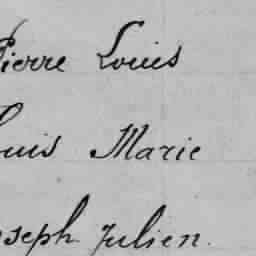 Pierre Louis
Louis Marie
Joseph Julien.